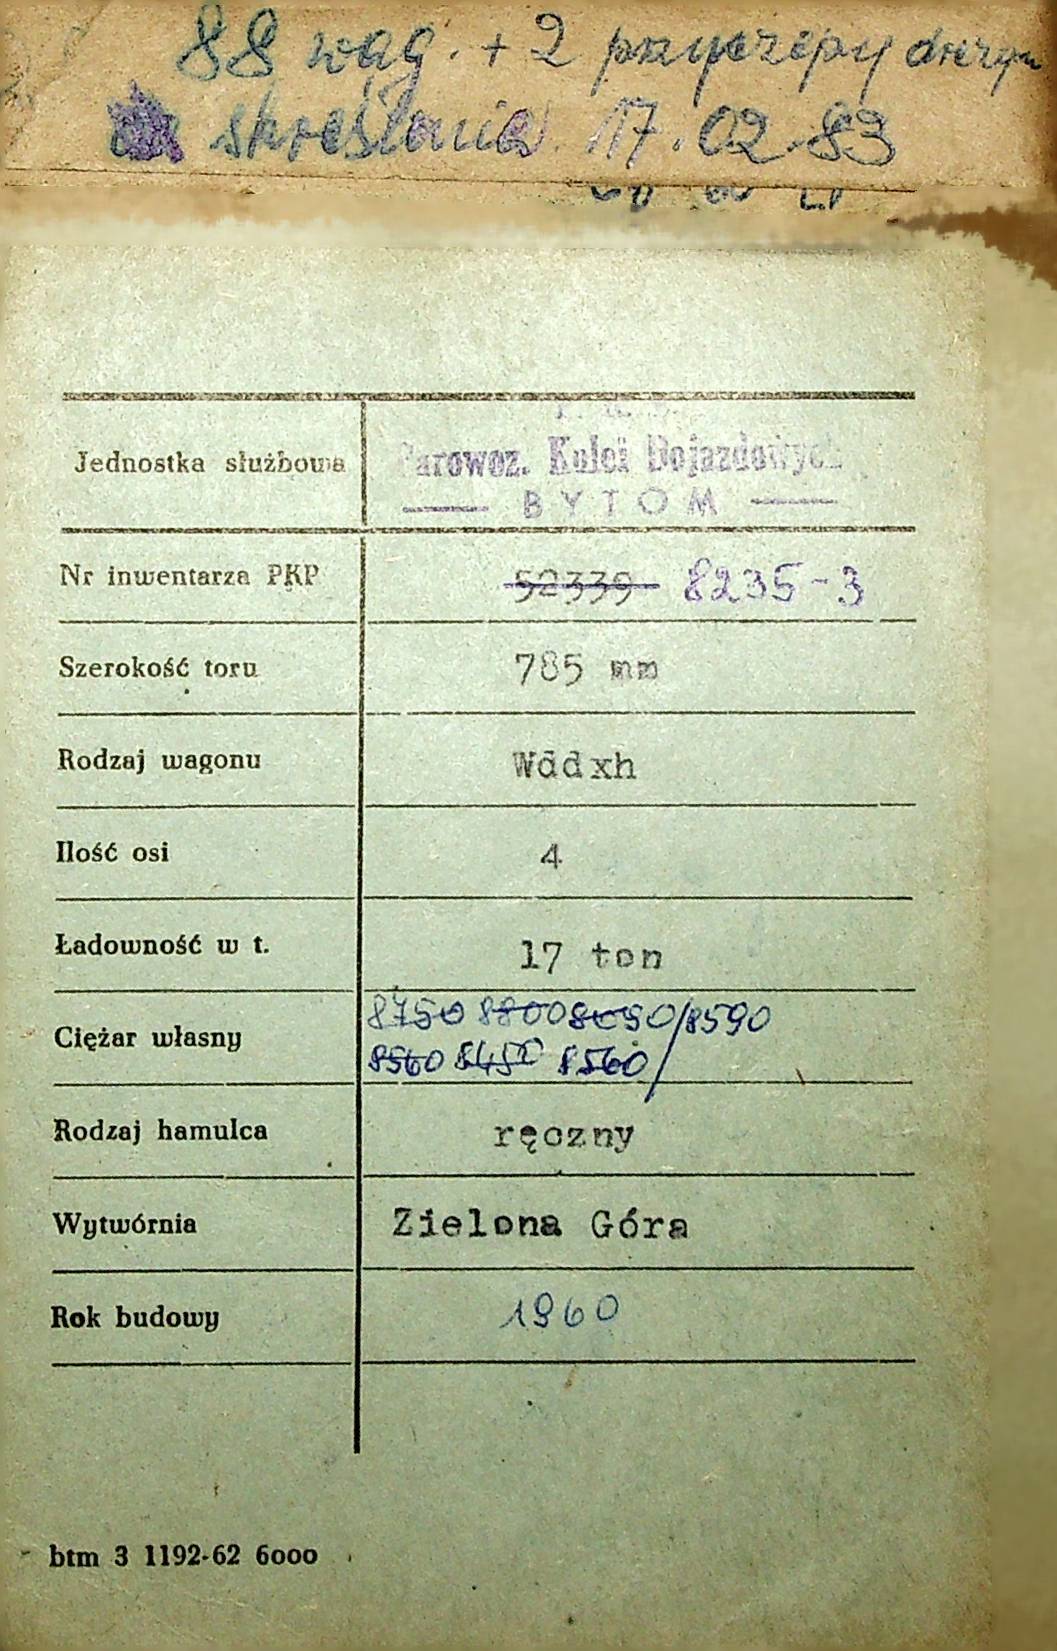 88 wag. + 2 przyczepy drezyn
skreślenia 17.02.83
Jednostka służbowa
Parowoz. Kolei Dojazdowych
BYTOM
Nr inwentarza PKP 52339 8235-3
Szerokość toru 785 mm
Rodzaj wagonu Wddxh
Ilość osi 4
Ładowność w t. 17 ton
8750 8800 8090/8590
Ciężar własny
8560 8450 8560
Rodzaj hamulca ręczny
Wytwórnia Zielona Góra
Rok budowy 1960
btm 3 1192-62 6000